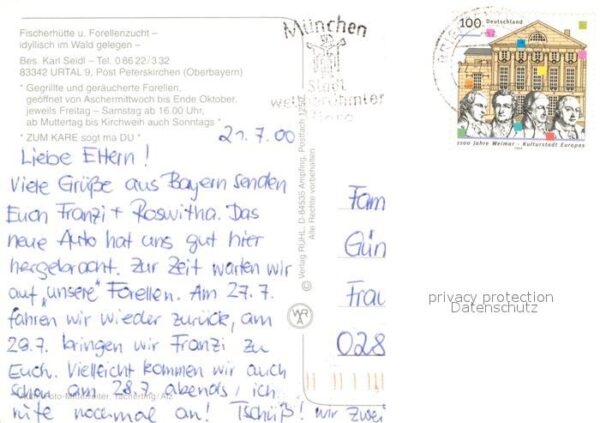 Fischerhütte u. Forellenzucht -
idyllisch im Wald gelegen -
Bes. Karl Seidl - Tel. 0 86 22 / 3 32
83342 URTAL 9, Post Peterskirchen (Oberbayern)
* Gegrillte und geräucherte Forellen.
geöffnet von Aschermittwoch bis Ende Oktober.
jeweils Freitag - Samstag ab 16.00 Uhr,
ab Muttertag bis Kirchweih auch Sonntags *
* ZUM KARE sogt ma DU *
21.7.00
Liebe Eltern!
Viele Grüße aus Bayern senden
Euch Franzi + Roswitha. Das
neue Auto hat uns gut hier
hergebracht. Zur Zeit warten wir
auf „unsere" Forellen. Am 27.7.
fahren wir wieder zurück, am
29.7. bringen wir Franzi zu
Euch. Vielleicht kommen wir auch
schon am 28.7. abends, ich
rufe nochmal an! Tschüß! wir zwei
© Verlag RÜHL, D-84535 Ampfing, Postfach 12
Alle Rechte vorbehalten
WR
A
München
Stadt
weltberühmter
100 Deutschland
1100 Jahre Weimar - Kulturstadt Europas
Fam
Gün
Frau
028
privacy protection
Datenschutz